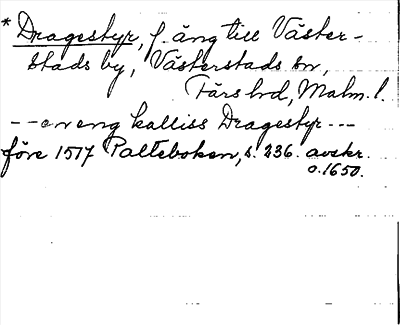 * Dragestyr, f. äng till Väster-
stads by, Västerstads sn,
Färs hd, Malm. l.
--- en eng kalliss Dragestyr ---
före 1517 Palteboken, s. 236. avskr.
o. 1650.